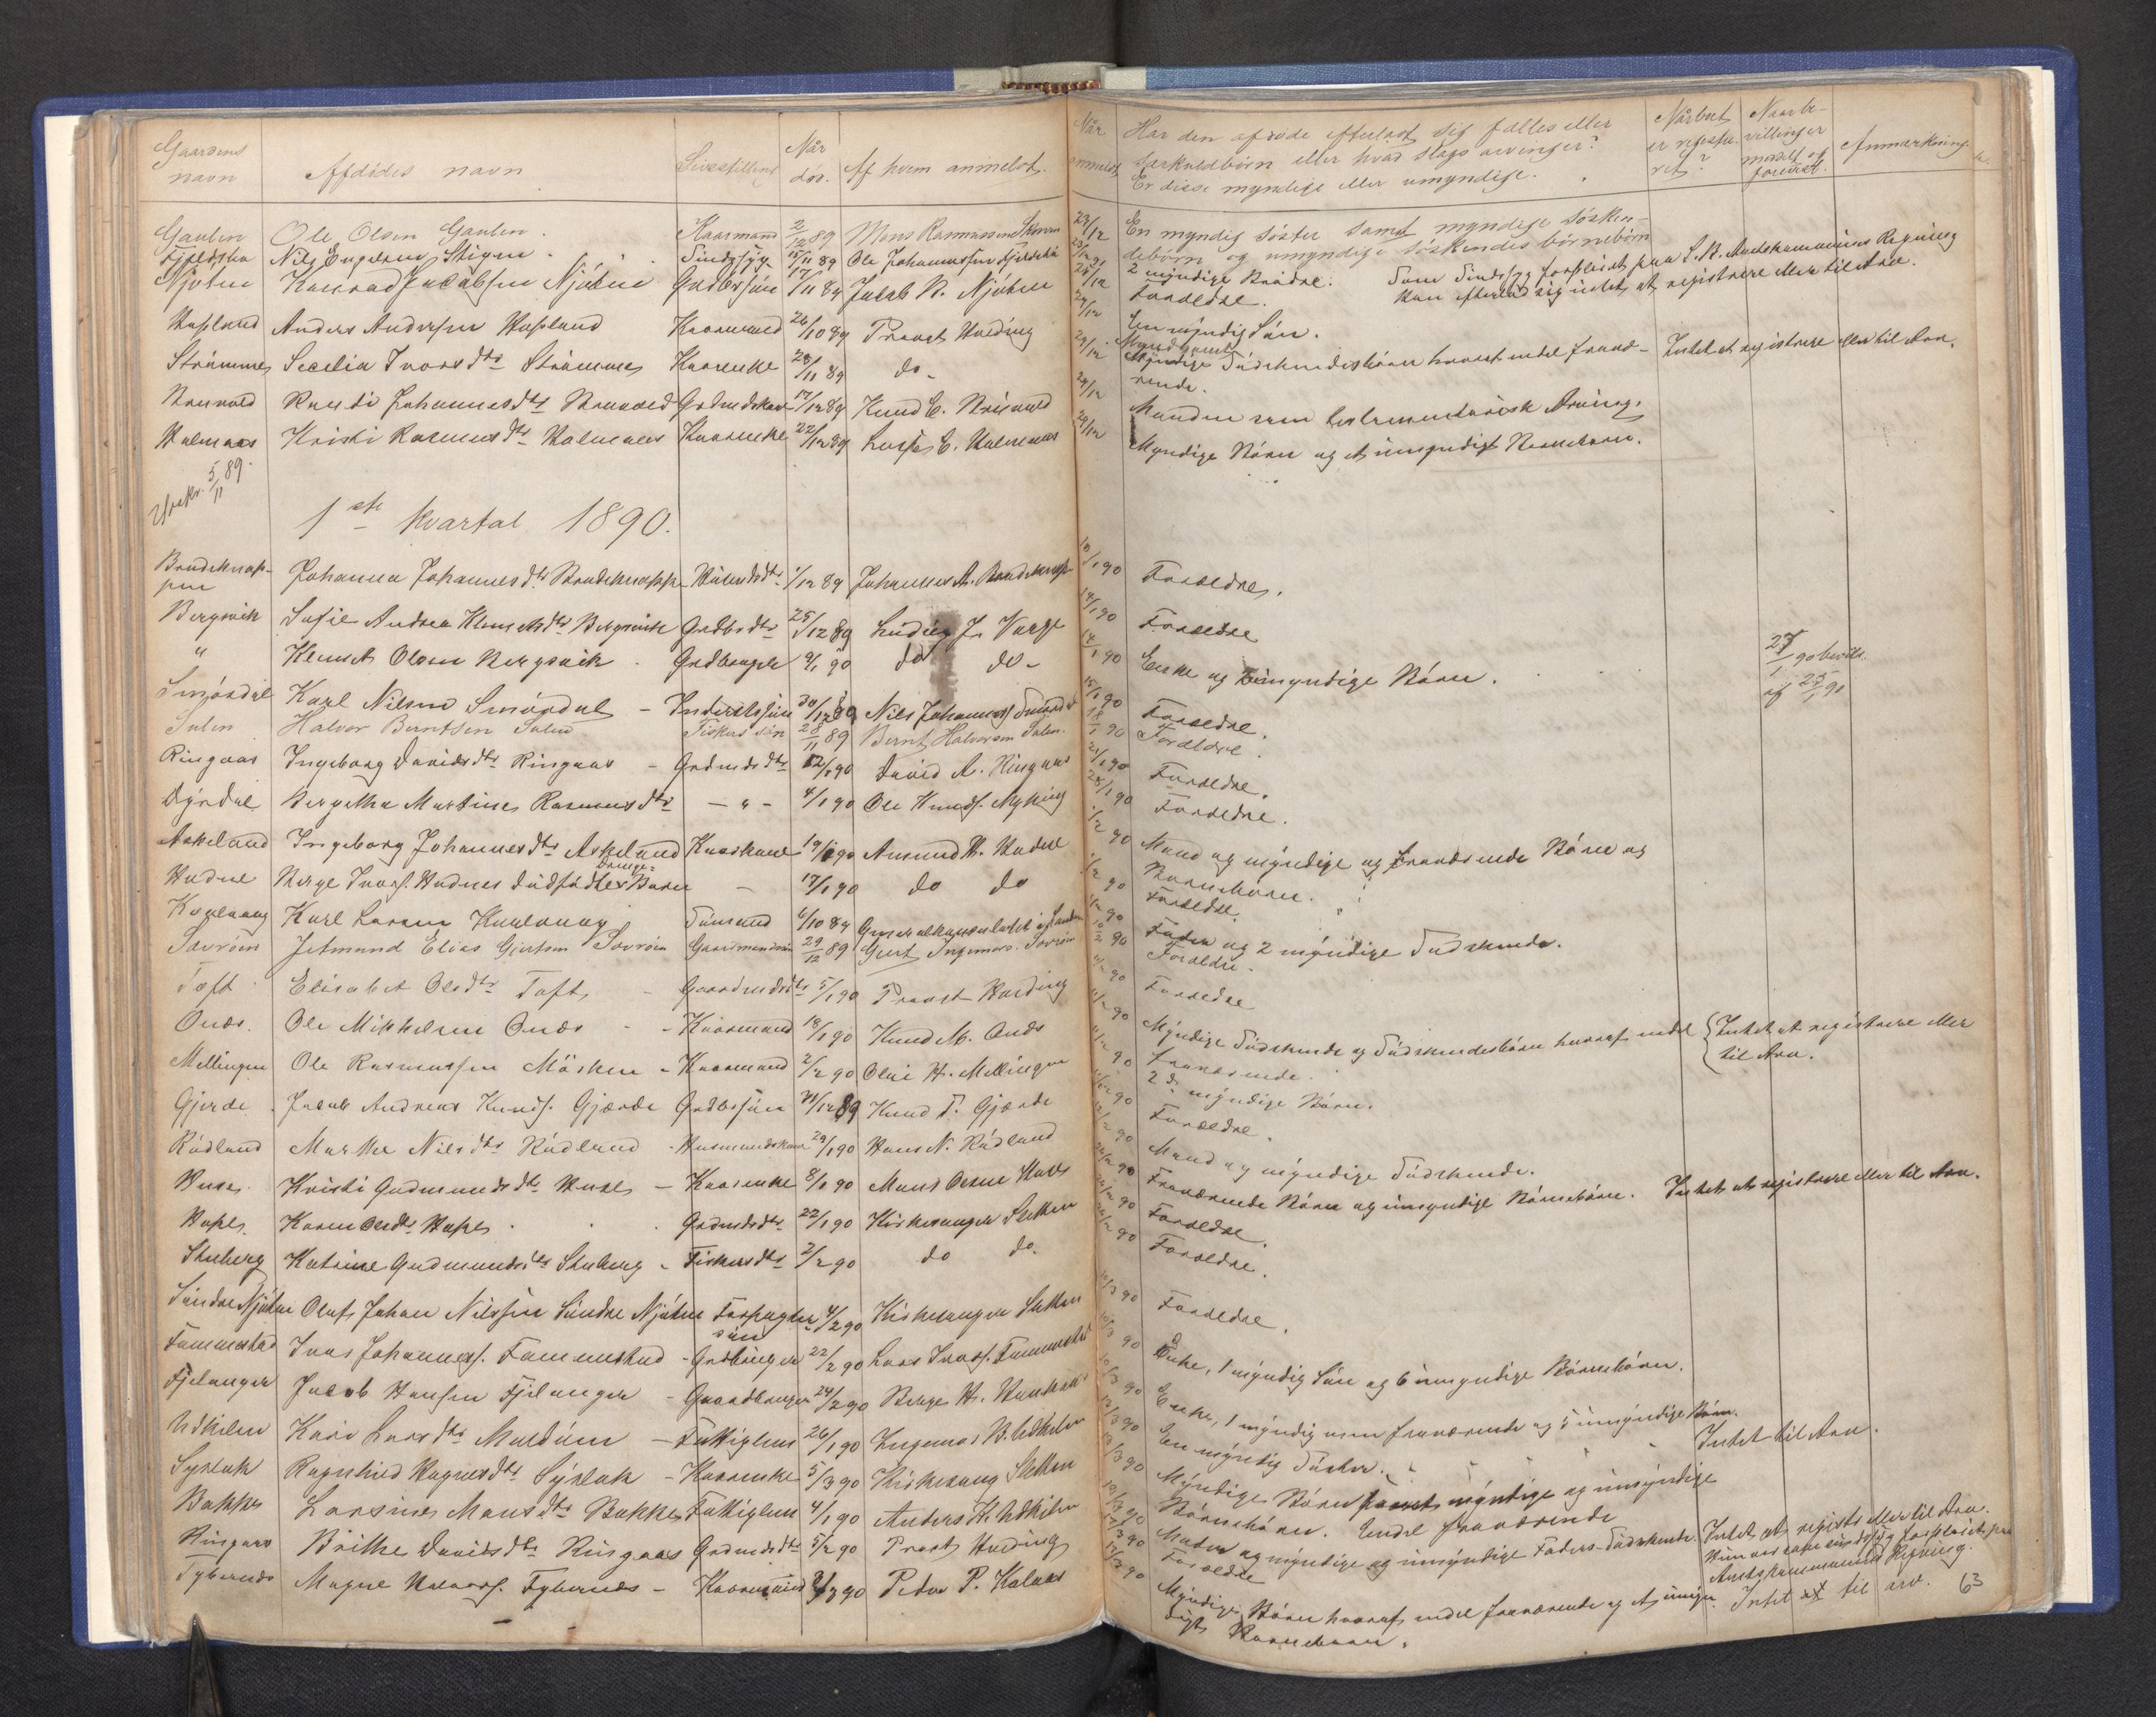 Gaardens navn | Afdødes navn | Livsstilling | Når død. | Af hvem anmeldt. | Når anmeldt | Har den afdøde efterladt sig fælles eller særkuldbørn eller hvad slags arvinger? Er disse myndige eller umyndige. | Når boet er registreret? | Naar bevillinger meddelt og forevist. | Anmærkning.
Gaulen | Ole Olsen Gaulen. | Kaarmand | 2/12 89 | Mons Rasmussen | 23/12 | En myndig søster samt myndige søskendebørn og umyndige søskendes børnebørn
Nils Engelsen Stigen | Sindssyg | 15/11 89 | Ole Johannessen | 2 myndige Brødre. Som Sindssyg forpleiet paa S.B. Amtskommunes Regning. Han efterlod sig intet at registrere eller til Arv.
Njøten | Konrad Jacobsen Njøten | Grdbrsøn | 17/11 89 | Jacob N. Njøten | 28/12 | Forældre.
Hopland | Anders Andersen Hopland | Kaarmand | 26/10 89 | Provst Harding | 29/12 | En myndig Søn.
Strømmen | Secelia Ivarsdtr Strømmen | Kaarenke | 28/11 89 | do | 29/12 | Myndige Sødskendebørn hvoraf endel fraværende. | Intet at registrere eller til Arv.
Randi Johannesdtr | Grdmdskone | 17/12 89 | Knud | 29/12 | Manden som testamentarisk Arving.
Halmaas | Kristi Rasmusdtr Halmaas | Kaarenke | 22/12 89 | Lasse E. Halmaas | 29/12 | Myndige Børn og et umyndigt Barnebarn.
5/11 89.
1ste kvartal 1890.
Brudeknappen | Johanna Johannesdtr Brudeknappen | 1/12 89 | Johannes A. Brudeknap | 10/1 90 | Forældre.
Bergsvik | Sofie Andrea Klemetsdtr Bergsvik | Grdbrdtr | 25/12 89 | Ludvig J. Varge | 14/1 90 | Forældre
" | Klemet Olsen Bergsvik | Grdbruger | 9/1 90 | do do | 14/1 90 | Enke og umyndige Børn. | 27/1 90 bevill. af 25/1 90
Smørdal | Karl Nilsen Smørdal | Inderstsøn | 30/12 89 | Nils Johannes Smørdal | 15/1 90 | Forældre.
Sulen | Halvor Berntsen Sulen | Fiskers søn | 28/11 89 | Bernt Halvorsen Sulen. | 18/1 90 | Forældre.
Ringaas | Ingeborg Davidsdtr Ringaas | Grdmdsdtr | 12/1 90 | David A. Ringaas | 21/1 90 | Forældre.
Dyrdal | Bergitha Martine Rasmusdtr | " | 4/1 90 | Ole Knuds. Myking | 28/1 90 | Forældre.
Askeland | Ingeborg Johannesdtr Askeland | Kaarkone | 19/1 90 | Amund H. Hadne | 1/2 90 | Mand og myndige og fraværende Børn og Børnebørn.
Hadne | Berge Ivars. Hadnes dødfødte Drenge-Barn | 17/1 90 | do do | 1/2 90 | Forældre.
Karl Larsen | Sømand | 6/10 89 | Generalkonsulatet i London | 1/2 90 | Fader og 2 myndige Sødskende.
Sørøen | Jetmund Elias Gjertsen Sørøen | Gaardmandssøn | 29/12 89 | Gjert Ingemars. Sørøen | 10/2 90 | Forældre.
Toft | Elisabet Olsdtr Toft | Gaardmdsdtr | 5/1 90 | Provst Harding | 11/2 90 | Forældre
Onæs. | Ole Mikkelsen Onæs | Kaarmand | 18/1 90 | Knud M. Onæs | 11/2 90 | Myndige Sødskende og Sødskendebørn hvoraf endel fraværende. | Intet at registrere eller til Arv.
Mellingen | Ole Rasmussen Mösken | Kaarmand | 2/2 90 | Oluf H. Mellingen | 11/2 90 | 2 myndige Børn.
Gjerde | Jacob Andreas Knuds. Gjærde | Grdbrsøn | 31/12 89 | Knud T. Gjærde | 90 | Forældre.
Rødland | Marthe Nilsdtr Rødland | Husmandskone | 29/1 90 | Hans N. Rødland | 90 | Mand og myndige Sødskende.
Huse | Kristi Gudmundsdtr Huse | Kaarenke | 8/1 90 | Mons Huse | 90 | Fraværende Børn og umyndige Børnebørn. | Intet at registrere eller til Arv.
Hope | Karen Olsdtr Hope | Grdmdsdtr | 22/1 90 | Kirkesanger Sletten | 90 | Forældre.
Stuberg | Katrine Gudmundsdtr Stuberg | Fiskersdtr | 2/2 90 | do do. | 90 | Forældre.
Søndre Njøten | Oluf Johan Nilssen Søndre Njøten | Forpagter søn | 4/2 90 | Kirkesanger Sletten | 10/3 90 | Forældre.
Fammestad | Ivar Johannes. Fammestad | Grdbruger | 22/2 90 | Lars Ivars. Fammestad | 10/3 90 | Enke, 1 myndig Søn og 6 umyndige Børnebørn.
Fjelanger | Jacob Hansen Fjelanger | Gaardbruger | 24/2 90 | Berge H. | 10/3 90 | Enke, 1 myndig men fraværende og 5 umyndige Børn.
Udkilen | Kari Larsdtr | Fattiglem | 26/1 90 | Ingemar B. Udkilen | 12/3 90 | En myndig Søster. | Intet til Arv.
Syslak | Ragnhild Magnesdtr Syslak | Kaarenke | 5/3 90 | Kirkesang Sletten | 13/3 90 | Myndige Børn samt myndige og umyndige Børnebørn. Endel fraværende
Bakke | Larsine Monsdtr Bakke | Fattiglem | 4/1 90 | Anders H. Udkilen | 13/3 90 | Moder og myndige og umyndige Faders-Sødskende. | Intet at registr. eller til Arv. Hun var som sindssyg forpleiet paa Amtskommunens Regning.
Ringaas | Brithe Davidsdtr Ringaas | Grdmdsdtr | 5/2 90 | Provst Harding | 17/3 90 | Forældre
Magne | Kaarmand | 3 90 | Peder P. Kalaas | 90 | Myndige Børn hvoraf endel fraværende og et umyndigt Barnebarn. | Intet til arv.
63